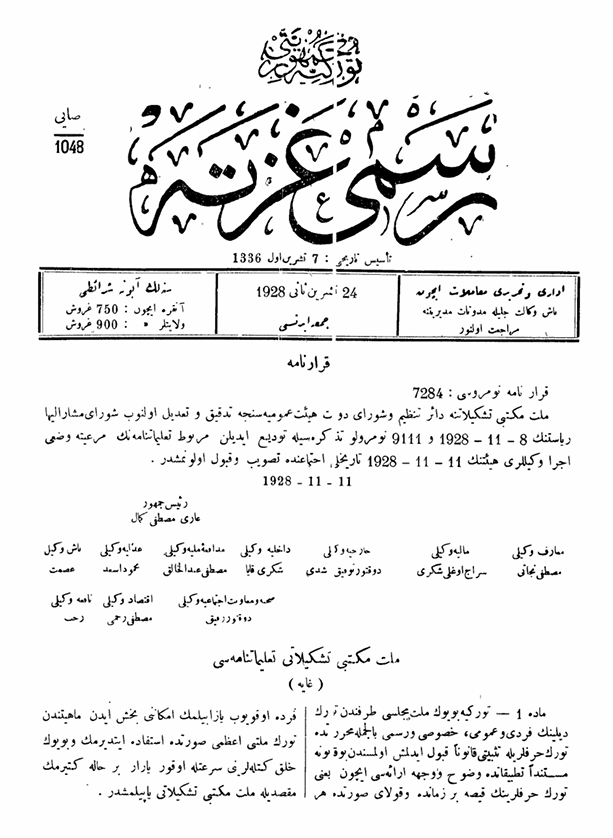 توركيه جمهوريتى
رسمى غزته
صايى
1048
تأسيس تاريخى : 7 تشرين اول 1336
ادارى و تحريرى معاملات ايچون
باش وكالت جليله مدونات مديريتنه
مراجعت اولنور
24 تشرين ثانى 1928
جمعه ايرتسى
سنه لك آبونه شرائطى
آنقره ايچون : 750 غروش
ولايتلر » : 900 غروش
قرارنامه
قرار نامه نومروسى : 7284
ملت مكتبى تشكيلاتنه دائر تنظيم وشوراى دولت هيئت عموميه سنجه تدقيق و تعديل اولنوب شوراى مشاراليها
رياستنك 8 – 11 – 1928 و 9111 نومرولو تذكره سيله توديع ايديلن مربوط تعليماتنامه نك مرعيته وضعى
اجرا وكيللرى هيئتنك 11 – 11 – 1928 تاريخلى اجتماعنده تصويب وقبول اولونمشدر .
11 – 11 – 1928
رئيس جمهور
غازى مصطفى كمال
باش وكيل عدليه وكيلى مدافعۀ مليه وكيلى داخليه وكيلى خارجيه وكيلى ماليه وكيلى معارف وكيلى
عصمت محمود اسعد مصطفى عبدالخالق شكرى قايا دوقتور توفيق رشدى سراج اوغلى شكرى مصطفى نجاتى
نافعه وكيلى اقتصاد وكيلى صحيه ومعاونت اجتماعيه وكيلى
رجب مصطفى رحمى دوقتور رفيق
ملت مكتبى تشكيلاتى تعليماتنامه سى
( غايه )
ماده 1 — توركيه بويوك ملت مجلسى طرفندن تورك
ديلينك فردى وعمومى، خصوصى ورسمى بالجمله محرراتده
تورك حرفلريله تثبيتى قانوناً قبول ايدلمش اولمسندن بو قانونه
مستنداً تطبيقاتده وضوح و وجهه ارائه سى ايچون يعنى
تورك حرفلرينك قيصه بر زمانده وقولاى صورتده هر
فرده اوقويوب يازابيلمك امكاننى بخش ايدن ماهيتندن
تورك ملتنى اعظمى صورتده استفاده ايتديرمك و بويوك
خلق كتله لرينى سرعتله اوقور يازار بر حاله كتيرمك
مقصديله ملت مكتبى تشكيلاتى ياپيلمشدر .